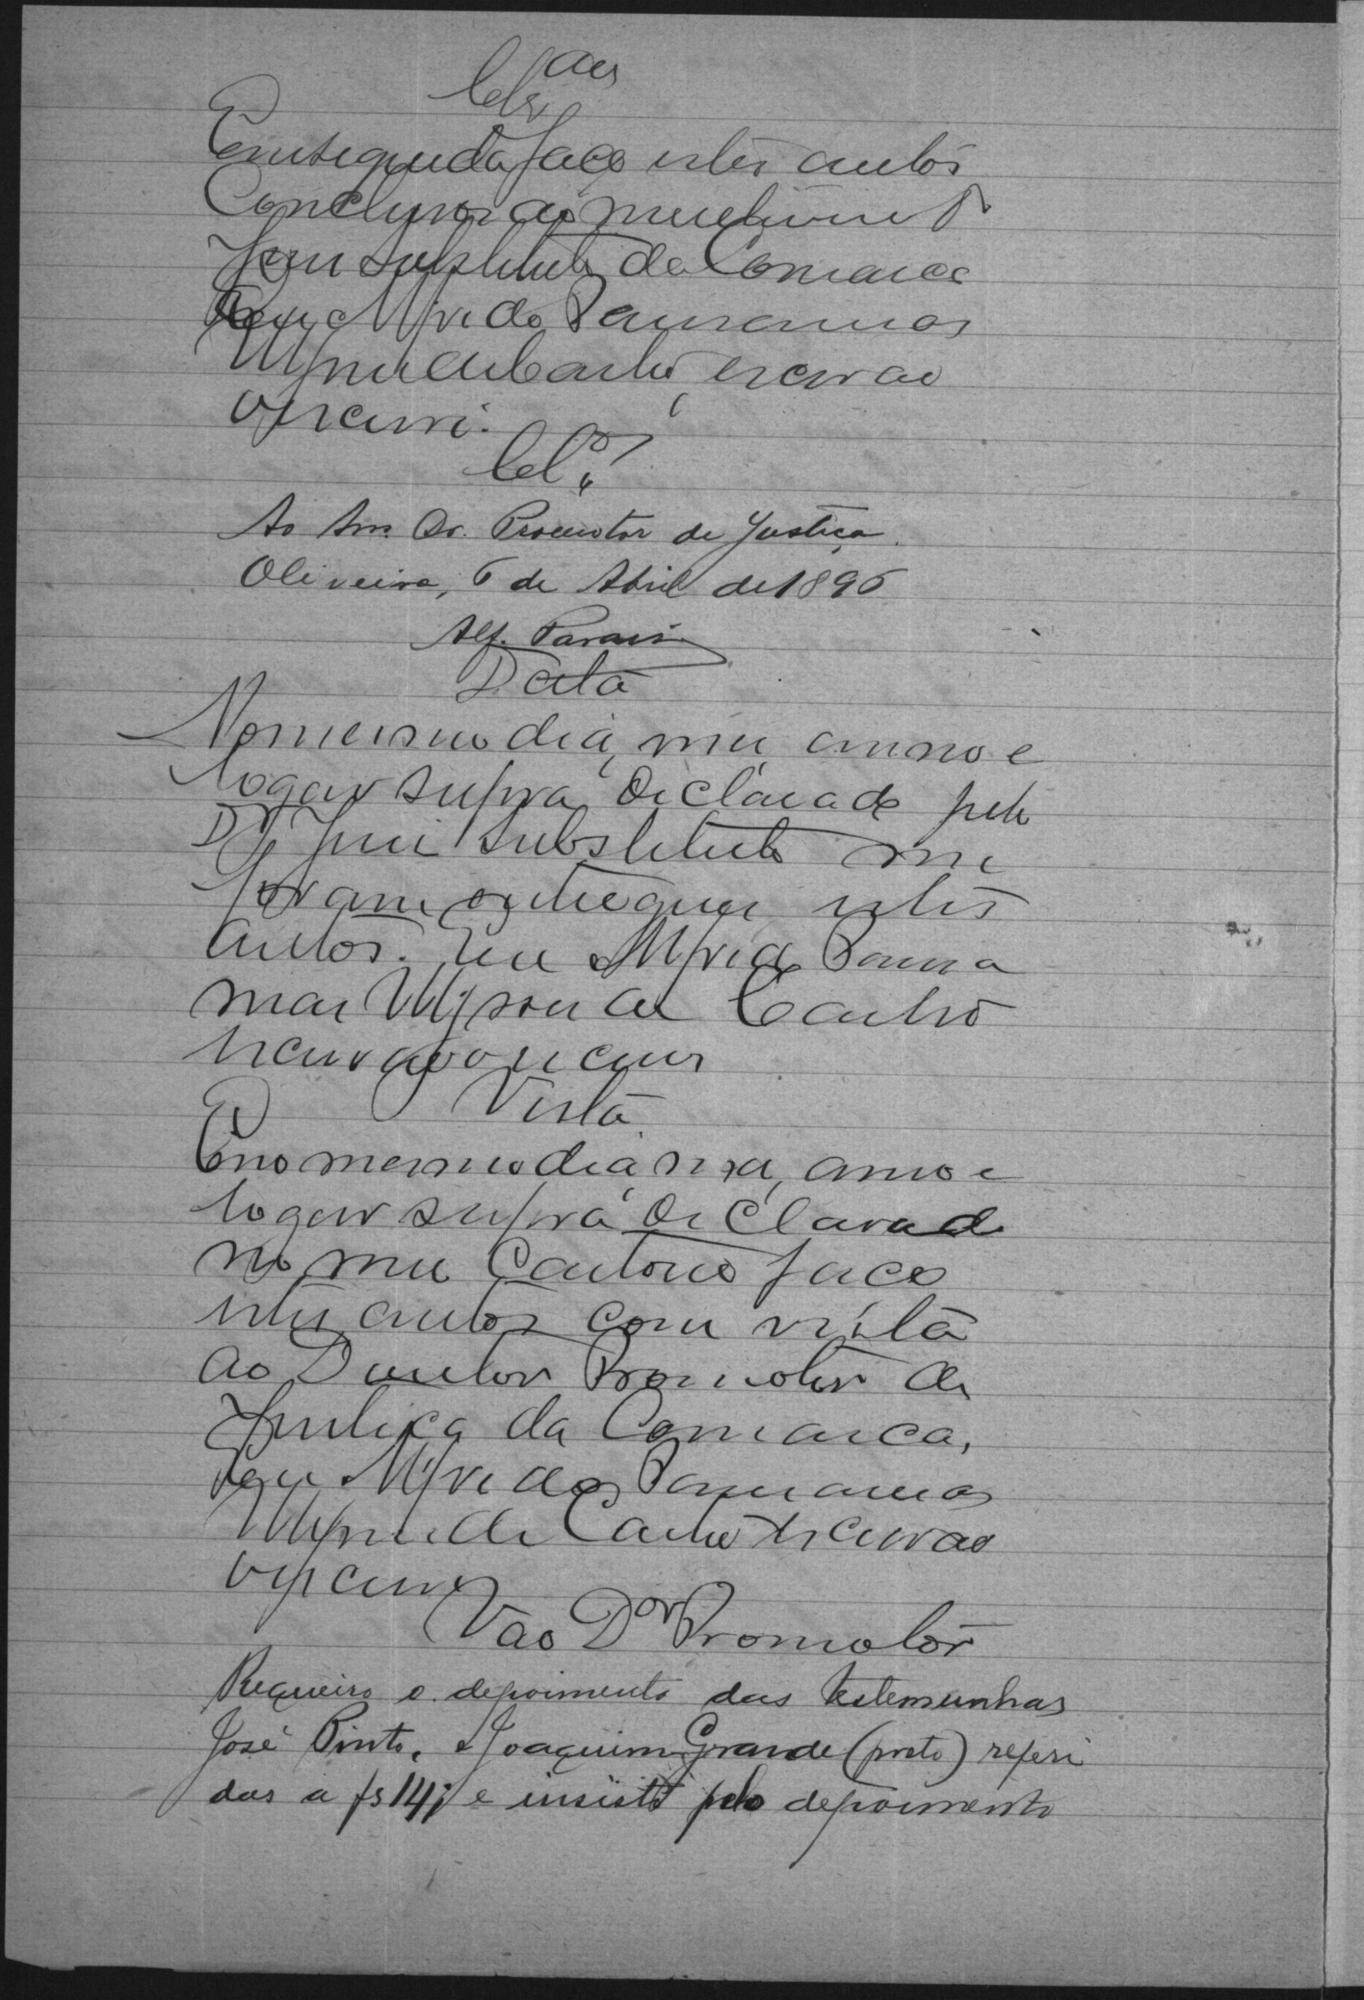 Clsam
Em seguida faço estes autos
Conclusos ao meretissimo Dr
Juiz Substituto da Comarca
Eu Alfredo Pausanias
de Castro, escrivão
o escrevi.
Cls.
Ao Snr. Dr. Promotor de Justiça.
Oliveira, 6 de Abril de 1896
Alf. Paraiso
Data
No mesmo dia, mez, anno e
logar supra declarado pelo
Dr Juiz Substituto me
foram entregues estes
autos. Eu Alfredo Pausa
nias de Castro
escrivão o escrevi
Vista
E no mesmo dia, mez, anno e
logar supra declarado
no meu Cartorio faço
estes autos com vista
ao Doutor Promotor de
Justiça da Comarca,
Eu Alfredo Pausanias
de Castro escrivão
o escrevi
V ao Dor Promotor
Requeiro o depoimento das testemunhas
José Pinto, e Joaquim Grande (preto) referi
das a fs 14; e insisto pelo depoimento